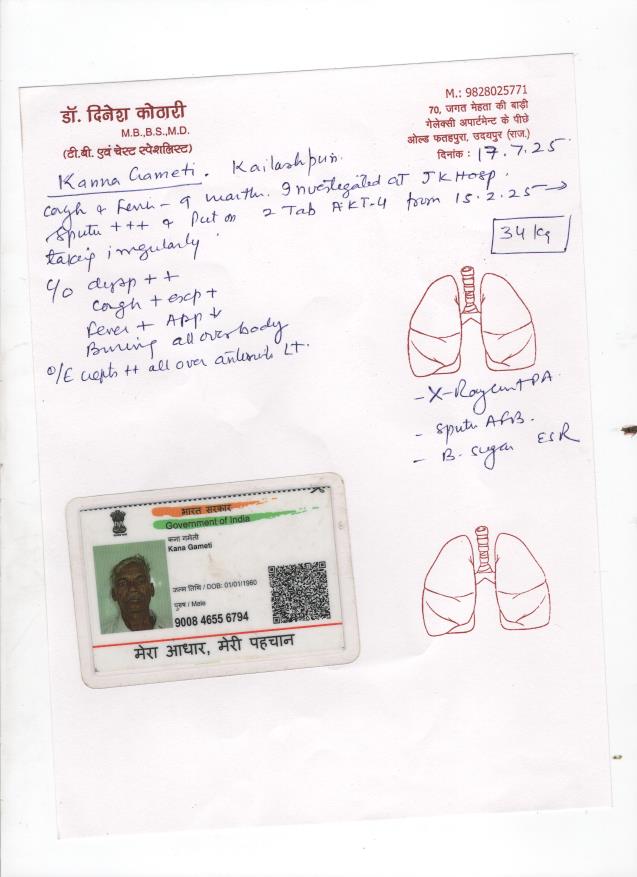 डॉ. दिनेश कोठारी
M.B.,B.S.,M.D.
(टी.बी. एवं चेस्ट स्पेशलिस्ट)
M.: 9828025771
70, जगत मेहता की बाड़ी
गेलेक्सी अपार्टमेन्ट के पीछे
ओल्ड फतहपुरा, उदयपुर (राज.)
दिनांक : 17.7.25
Kanna Gameti. Kailashpuri.
cough & Fever - 9 month. Investigated at JK Hosp.
Sputu +++ & Put on 2 Tab AKT-4 from 15.2.25 →
taking irregularly.
34 kg
C/O dysp ++
cough + exp +
Fever + App ↓
Burning all over body
O/E crepts ++ all over Lt.
- X-Ray PA
- Sputu AFB.
- B. Sugar ESR
भारत सरकार
Government of India
कना गमेती
Kana Gameti
जन्म तिथि / DOB: 01/01/1960
पुरुष / Male
9008 4655 6794
मेरा आधार, मेरी पहचान